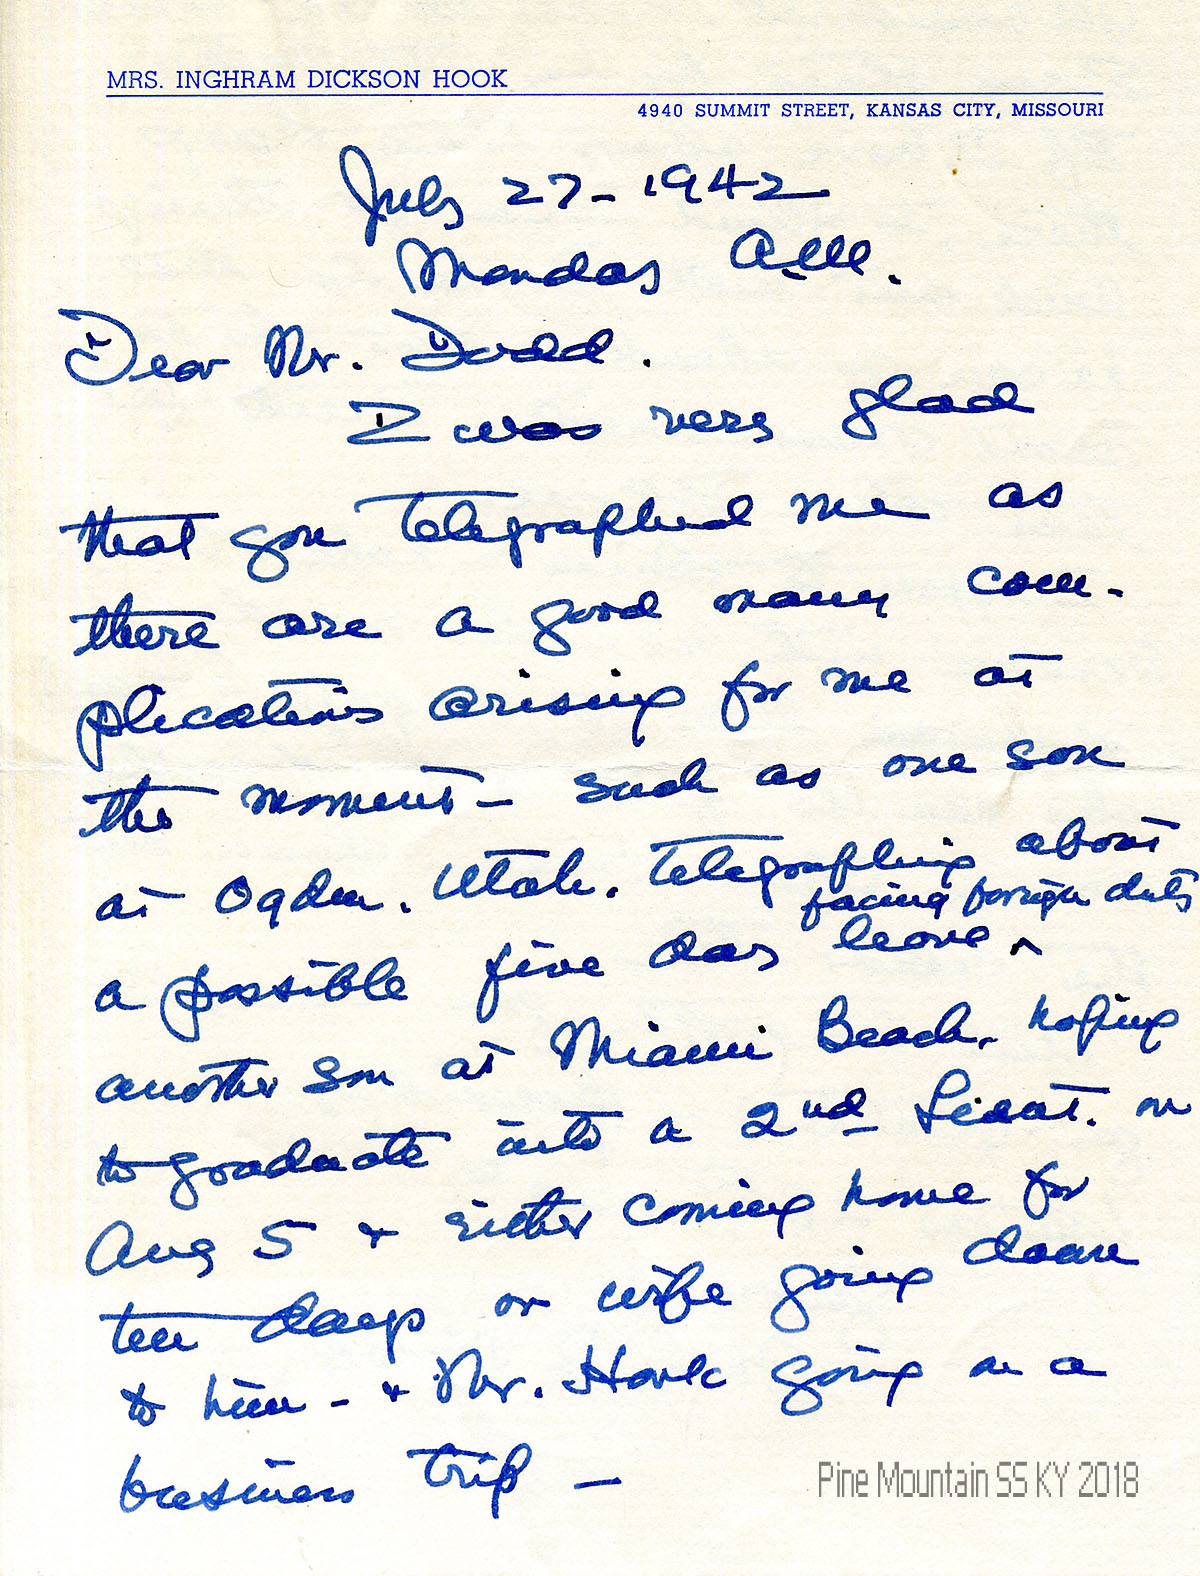 MRS. INGHRAM DICKSON HOOK
4940 SUMMIT STREET, KANSAS CITY, MISSOURI
July 27-1942
Monday A.M.
Dear Mr. Dodd.
I was very glad
that you telegraphed me as
there are a good many com-
plications arising for me at
the moment - such as one son
at Ogden, Utah, telegraphing about
facing foreign duty
a possible five day leave ^
another son at Miami Beach, hoping
to graduate into a 2nd Lieut. on
Aug 5 & either coming home for
ten days or wife going down
to him - & Mr. Hook going on a
business trip -
Pine Mountain SS KY 2018